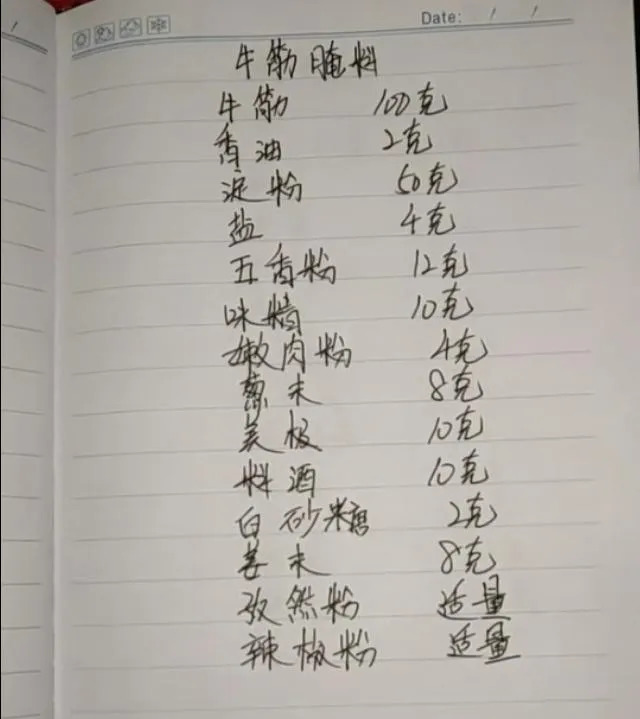 Date: / /
牛筋腌料
牛筋 100克
香油 2克
淀粉 50克
盐 4克
五香粉 12克
味精 10克
嫩肉粉 4克
葱末 8克
美极 10克
料酒 10克
白砂糖 2克
姜末 8克
孜然粉 适量
辣椒粉 适量